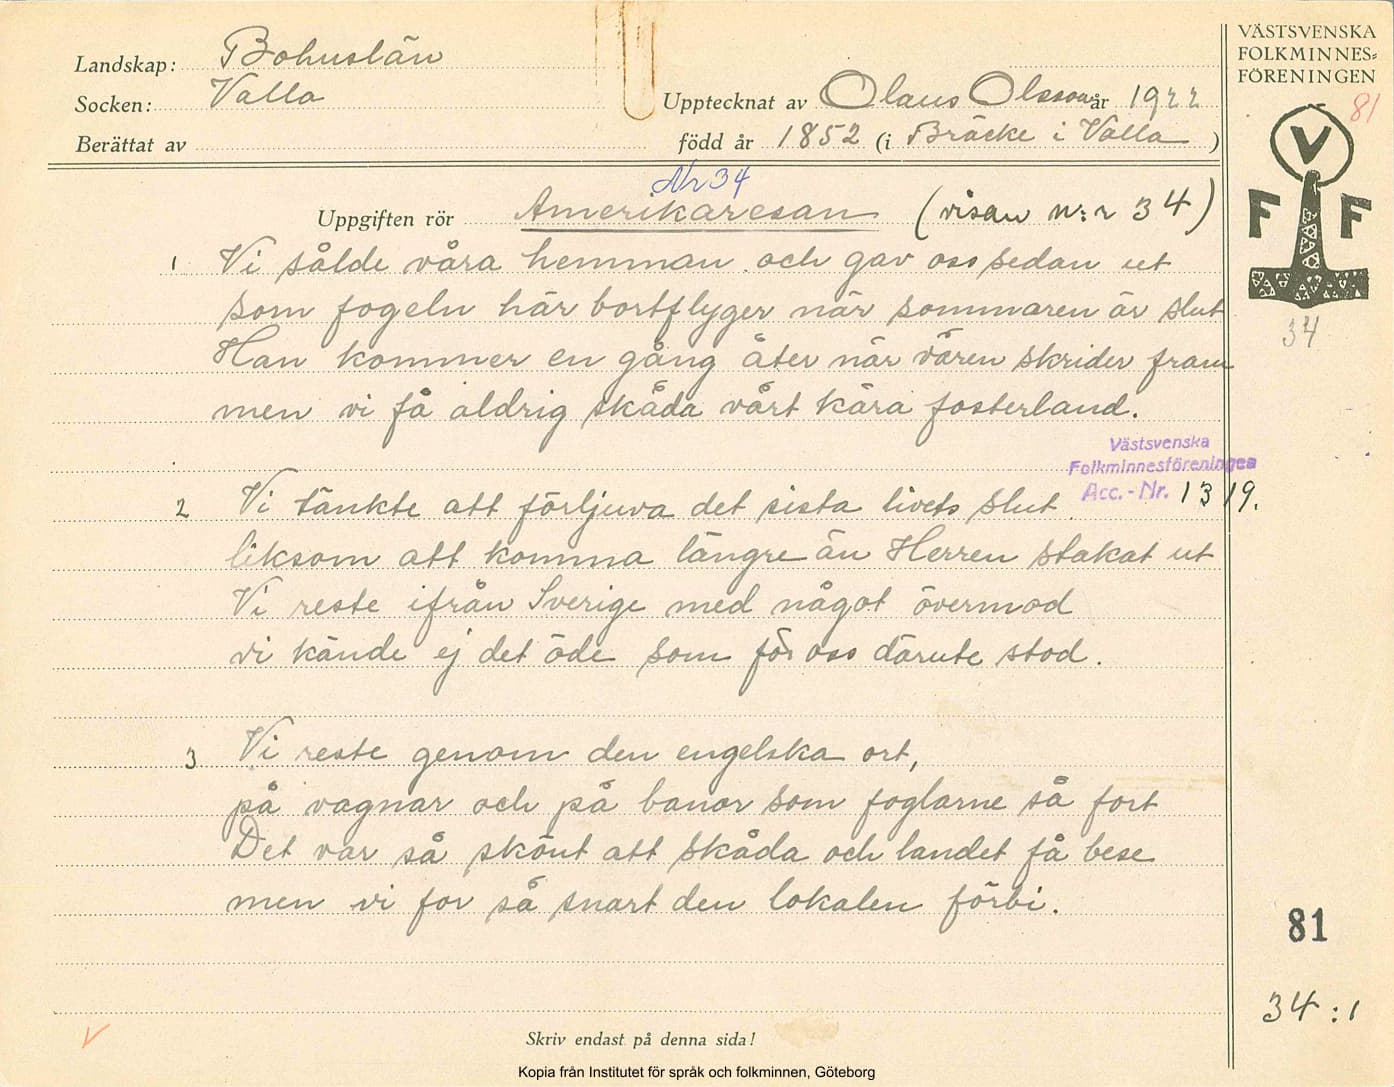 Landskap: Bohuslän
Socken: Valla
Berättat av
Upptecknat av Olaus Olsson år 1922
född år 1852 (i Bräcke i Valla)
VÄSTSVENSKA
FOLKMINNES=
FÖRENINGEN
81
V
F F
34
Nr 34
Uppgiften rör Amerikaresan (visan n:r 34)
1 Vi sålde våra hemman och gav oss sedan ut
som fogeln här bortflyger när sommaren är slut
Han kommer en gång åter när våren skrider fram
men vi få aldrig skåda vårt kära fosterland.
Västsvenska
Folkminnesföreningen
Acc.-Nr. 1319.
2 Vi tänkte att förljuva det sista livets slut
liksom att komma längre än Herren stakat ut
Vi reste ifrån Sverige med något övermod
vi kände ej det öde som för oss därute stod.
3 Vi reste genom den engelska ort,
på vagnar och på banor som foglarne så fort
Det var så skönt att skåda och landet få bese
men vi for så snart den lokalen förbi.
81
34:1
Skriv endast på denna sida!
Kopia från Institutet för språk och folkminnen, Göteborg